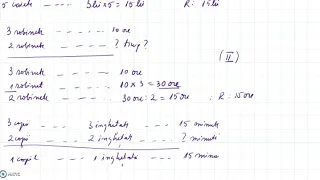 5 caiete ---- 3lei×5 = 15lei R: 15lei
3 robinete ---- 10 ore
2 robinete ---- ? timp?
(II)
3 robinete ---- 10 ore
1 robinet ---- 10 × 3 = 30 ore
2 robinete ---- 30 ore : 2 = 15 ore R: 15 ore
3 copii ---- 3 înghețate ---- 15 minute
2 copii ---- 2 înghețate ---- ? minute
1 copil ---- 1 înghețată ---- 15 minu